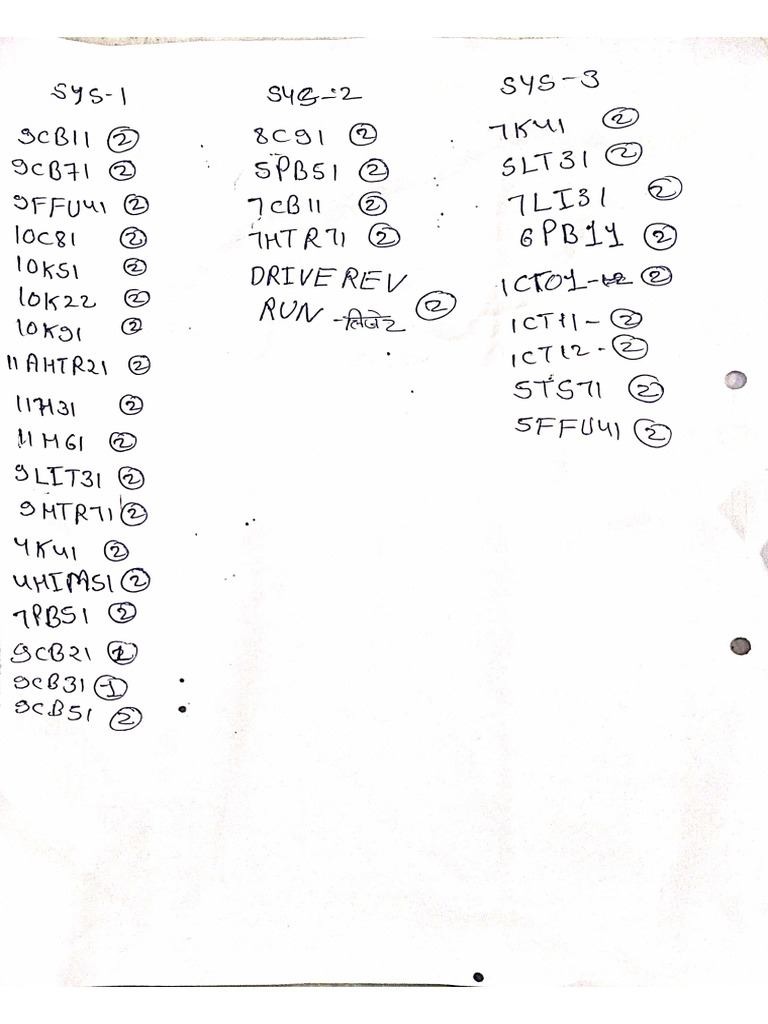 SYS-1
9CB11 2
9CB71 2
9FFU41 2
10C81 2
10K51 2
10K22 2
10K91 2
11AHTR21 2
11M31 2
11M61 2
9LIT31 2
9HTR71 2
4K41 2
4HIM51 2
7PB51 2
9CB21
9CB31 -1
9CB51 2
SYS-2
8C91 2
5PB51 2
7CB11 2
7HTR71 2
DRIVE REV
RUN - 2
SYS-3
7K41 2
5LT31 2
7LI31 2
6PB11 2
1CT01- 2
1CT11- 2
1CT12- 2
5TS71 2
5FFU41 2